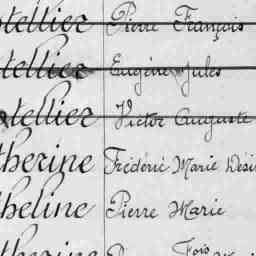 otellier Pierre François
tellier Eugène Jules
otellier Victor Auguste
therine Frédéric Marie Dési
theline Pierre Marie
therine Fois